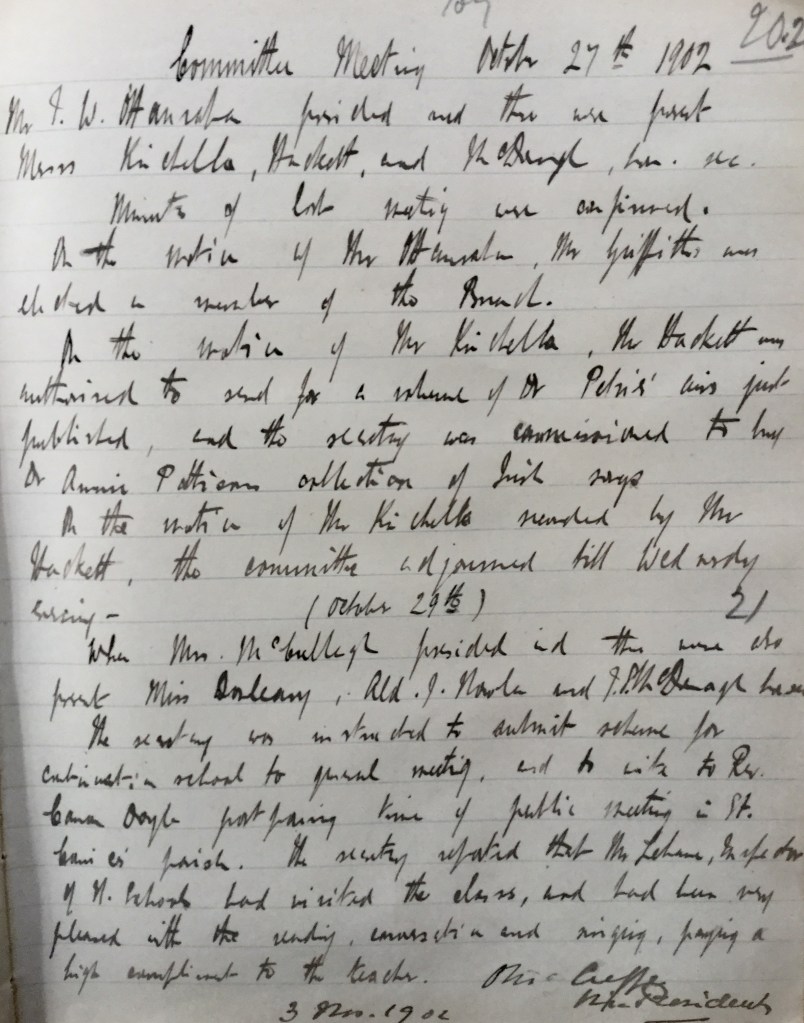 20.2
Committee Meeting October 27th 1902
Mr T. W. O'Hanrahan presided and there were present
Messrs Kinchella, Hackett, and McDonagh, hon. sec.
Minutes of last meeting were confirmed.
On the motion of Mr O'Hanrahan, Mr Griffiths was
elected a member of the Branch.
On the motion of Mr Kinchella, Mr Hackett was
authorised to send for a volume of Dr Petries' airs just
published, and the secretary was commissioned to buy
Dr Annie Pattisons collection of Irish songs
On the motion of Mr Kinchella seconded by Mr
Hackett, the committee adjourned till Wednesday
evening - (October 29th) 21
When Mrs. McCullagh presided and there were also
present Miss Ald. J. Nowlan and J. P. McDonagh
The secretary was instructed to submit scheme for
continuation school to general meeting, and to write to Rev.
Canon Doyle postponing time of public meeting in St.
Canices' parish. The secretary reported that Mr Lehane, Inspector
of N. Schools had visited the classes, and had been very
pleased with the reading, conversation and singing, paying a
high compliment to the teacher.
Vice Presidents
3 Nov. 1902